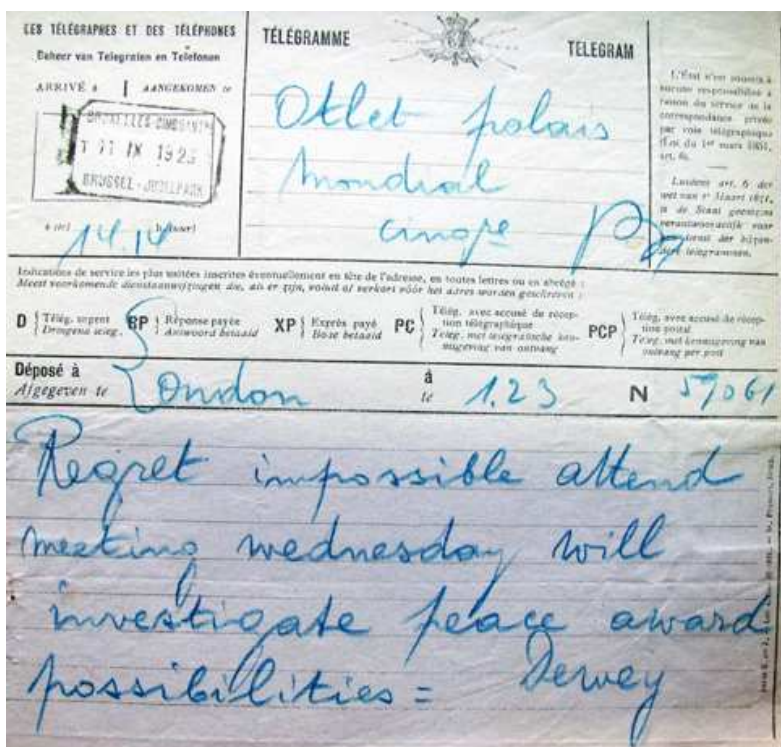 LES TÉLÉGRAPHES ET DES TÉLÉPHONES
Beheer van Telegrafen en Telefonen
ARRIVÉ à | AANGEKOMEN te
BRUXELLES-CINQUANTE
11 IX 1925
BRUSSEL-JUBELPARK
14.14
TÉLÉGRAMME
TELEGRAM
Otlet palais
mondial
cinqre
L'État n'est soumis à
aucune responsabilité à
raison du service de la
correspondance privée
par voie télégraphique
(Loi du 1er mars 1851,
art. 6).
Luidens art. 6 der
wet van 1e Maart 1851,
is de Staat geenszins
verantwoordelijk voor
den dienst der bijzon-
dere telegrammen.
Indications de service les plus usitées inscrites éventuellement en tête de l'adresse, en toutes lettres ou en abrégé :
Meest voorkomende dienstaanwijzingen die, als er zijn, voluit of verkort vóór het adres worden geschreven :
D } Télég. urgent
Dringend teleg.
RP } Réponse payée
Antwoord betaald
XP } Exprès payé
Bode betaald
PC } Télég. avec accusé de récep-
tion télégraphique
Teleg. met telegrafische ken-
nisgeving van ontvang
PCP } Télég. avec accusé de récep-
tion postal
Teleg. met kennisgeving van
ontvang per post
Déposé à
Afgegeven te
London
à
te
1.23
N
57061
Regret impossible attend
meeting wednesday will
investigate peace award
possibilities = Dewey